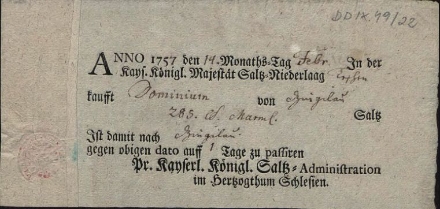 DD IX 49/22
ANNO 1757 den 14. Monaths-Tag Febr. In der
Kays. Königl. Majestät Saltz-Niederlaag
kaufft Dominium von
285. Saltz
Ist damit nach
gegen obigen dato auff 1 Tage zu passiren
Pr. Kayserl. Königl. Saltz-Administration
im Hertzogthum Schlesien.